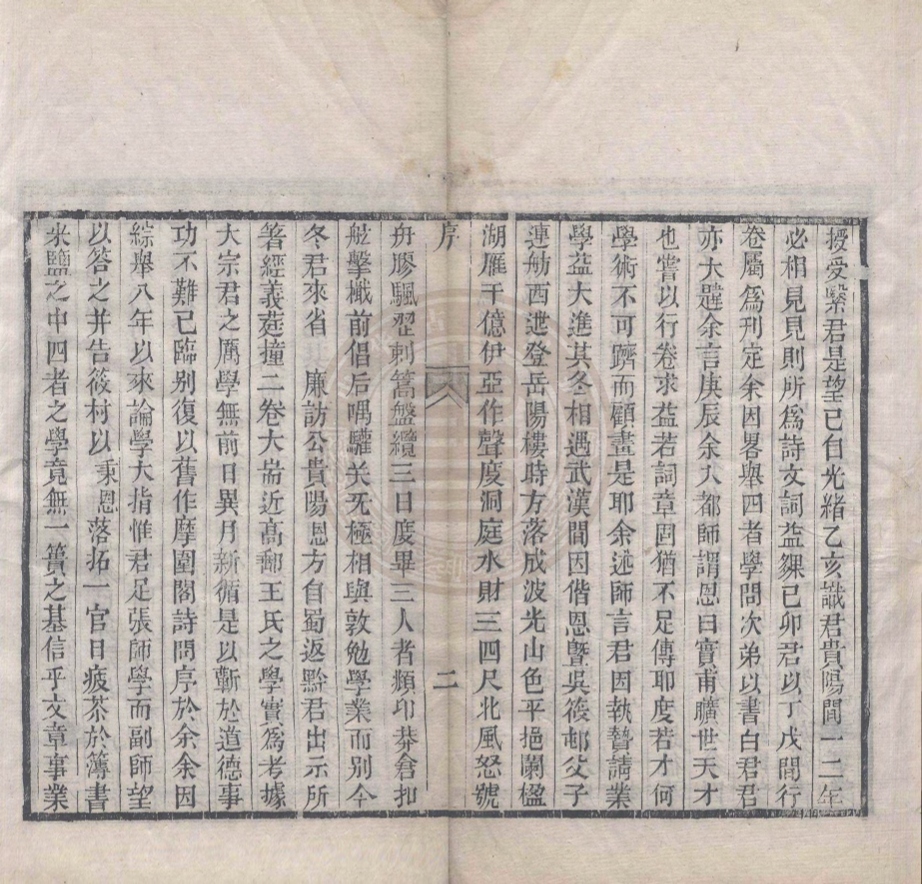 授受緊君是望已自光緒乙亥識君貴陽間一二年
必相見見則所爲詩文詞益夥己卯君以丁戊間行
卷屬爲刊定余因畧舉四者學問次弟以書白君君
亦大韙余言庚辰余入都師謂恩曰實甫曠世天才
也嘗以行卷求益若詞章固猶不足傳耶度若才何
學術不可躋而顧畫是耶余述師言君因執贄請業
學益大進其冬相遇武漢間因偕恩曁吳筱邨父子
連舫西迣登岳陽樓時方落成波光山色平挹闌楹
湖雁千億伊亞作聲度洞庭水財三四尺北風怒號
序
二
舟膠颿翌刺篙盤纜三日度畢三人者頫卬莽倉扣
舷擊檝前倡后喁驩关旡極相與敦勉學業而別今
冬君來省 廉訪公貴陽恩方自蜀返黔君出示所
箸經義莛撞二卷大耑近高郵王氏之學實爲考據
大宗君之厲學無前日異月新循是以蘄於道德事
功不難已臨别復以舊作摩圍閣詩問序於余余因
綜舉八年以來論學大指惟君足張師學而副師望
以答之并告筱村以秉恩落拓一官日疲苶於簿書
米鹽之中四者之學竟無一簣之基信乎文章事業